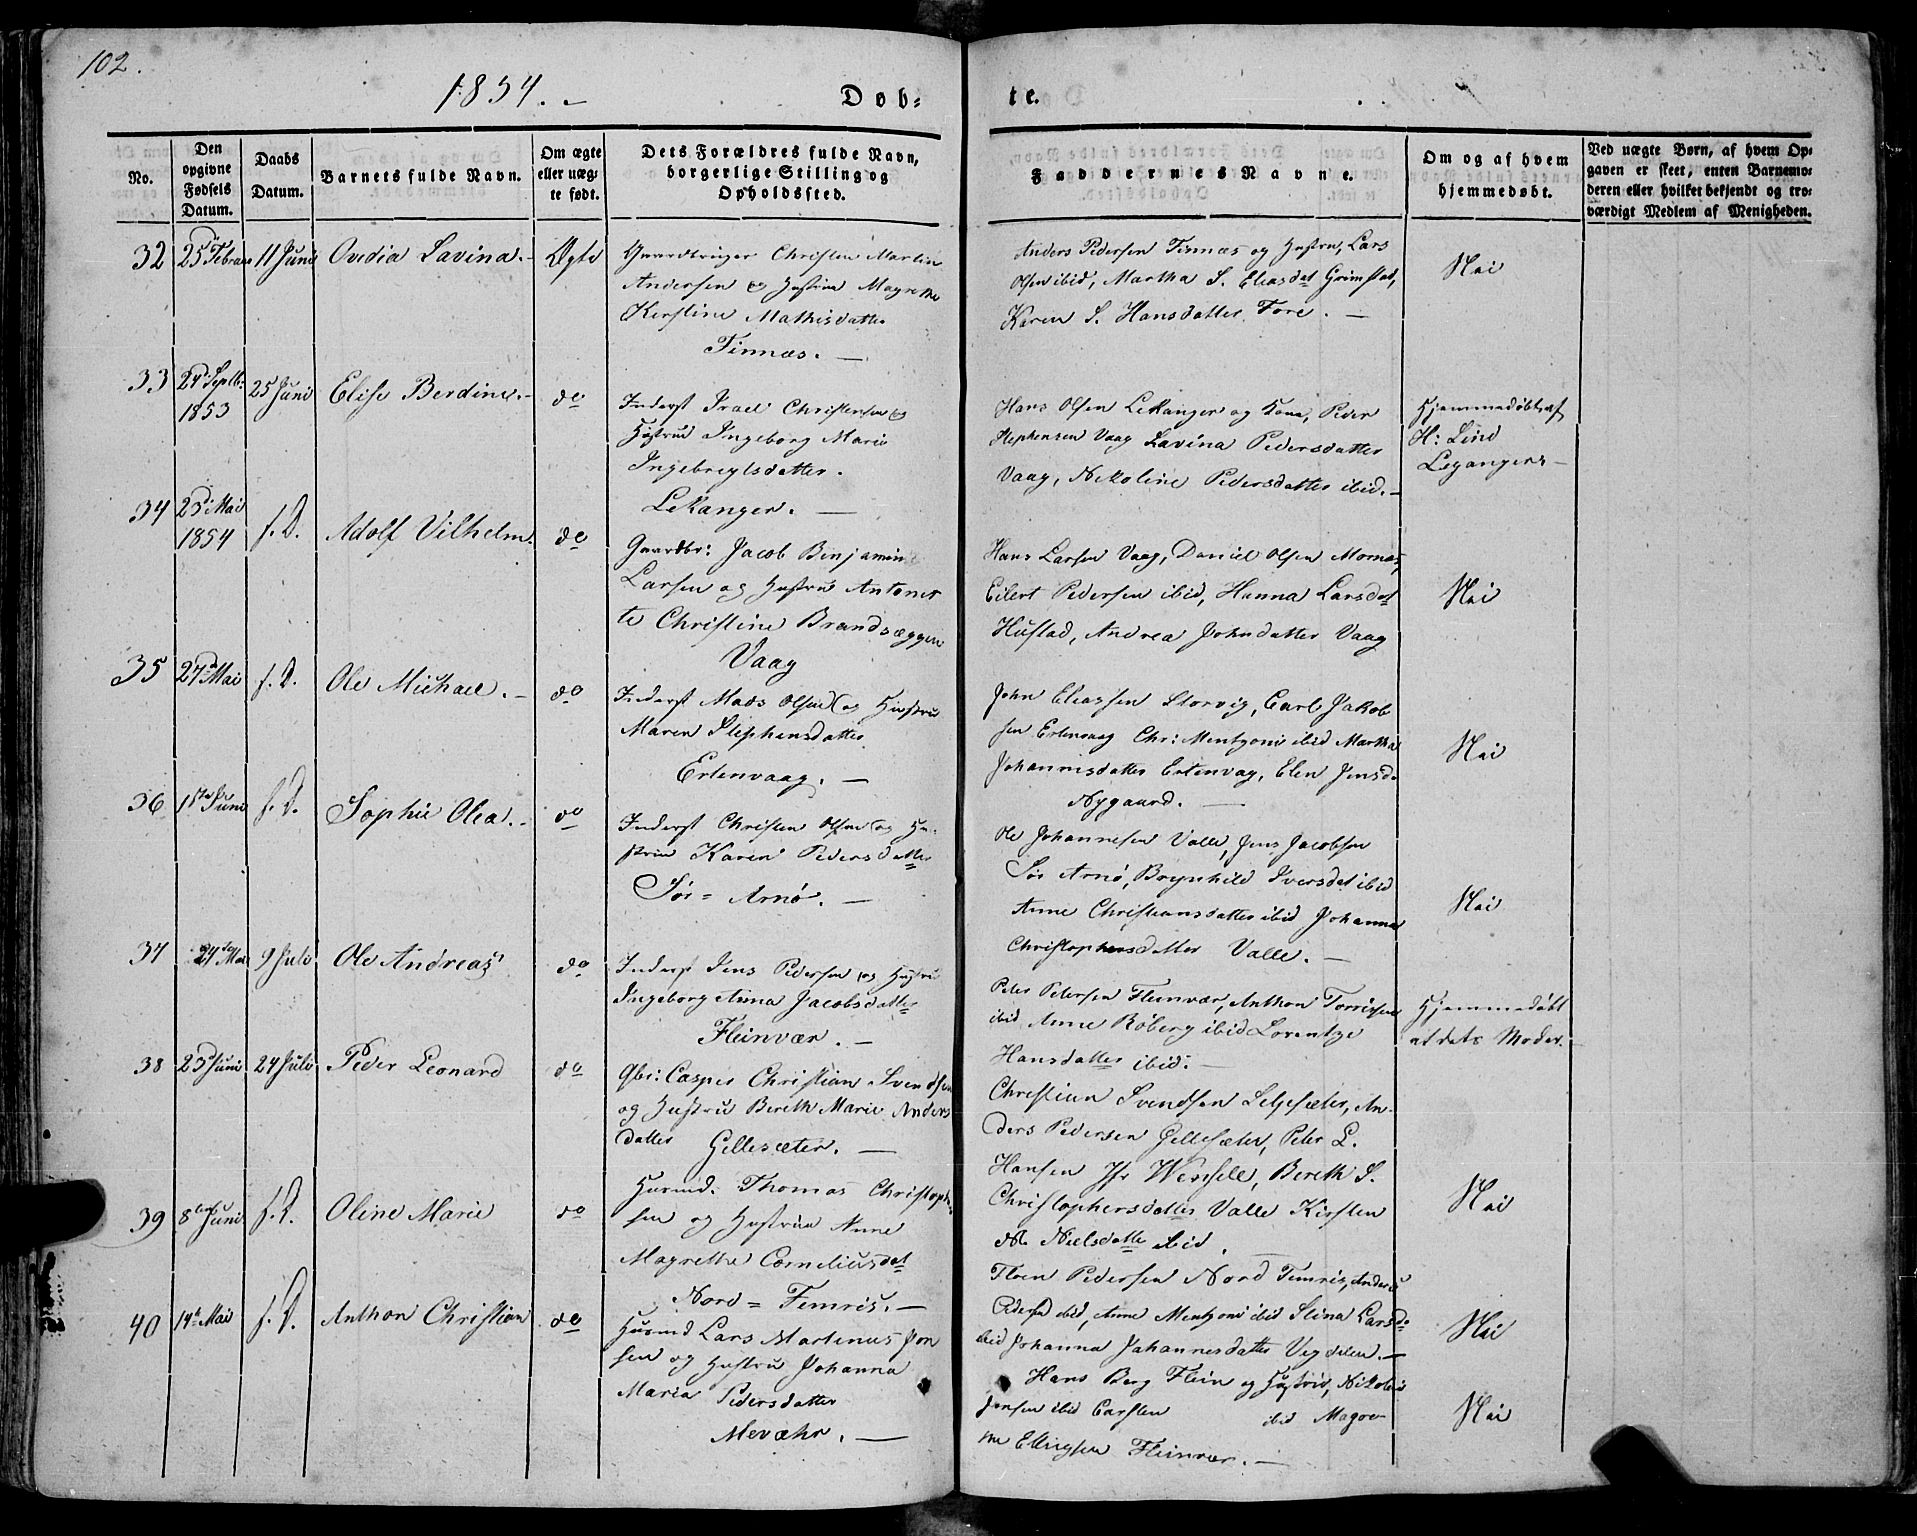 102.
1854.
Døb-
te.
No.
Den opgivne Fødsels Datum.
Daabs Datum.
Barnets fulde Navn.
Om ægte eller uægte født.
Dets Forældres fulde Navn, borgerlige Stilling og Opholdssted.
Faddernes Navne.
Om og af hvem hjemmedøbt.
Ved uægte Børn, af hvem Opgaven er skeet, enten Barnemoderen eller hvilket bekjendt og troværdigt Medlem af Menigheden.
32 25 Februar 11 Juni Ovedia Lavina. Ægte
Gaardbruger Christen Martin
Andersen og Hustru Magrethe
Kirstine Mathisdatter
Finnæs.
Anders Pedersen Finnæs og Hustru, Lars
Olsen ibid, Martha S. Eleasdat Grimstad,
Karen S. Hansdatter Fore.
Nei
33 24 Septb: 1853 25 Juni Elise Berdine. do
Inderst Israel Christensen og
Hustrue Ingeborg Marie
Ingebregtsdatter.
LeKanger.
Hans Olsen LeKanger og Kone, Peder
Stephensen Vaag Lavina Pedersdatter
Vaag, Nikoline Pedersdatter ibid.
Hjemmedøbt af
H: Lind
Legangers
34 23 Mai 1854 f. D. Adolf Vilhelm. do
Gaardbr: Jacob Benjamin
Larsen og Hustru Antonet
te Christine Brandsæggen
Vaag
Hans Larsen Vaag, Daniel Olsen Mornæs,
Eilert Pedersen ibid, Hanna Larsdat
Hustad, Andrea Johnsdatter Vaag
Nei
35 27 Mai f. D. Ole Michael. do
Inderst Mads Olsen og Hustru
Maren Stephensdatter
Ertenvaag.
John Eleassen Storvig, Carl Jakob
sen Ertenvaag Chr: Mentzoni ibid Martha
Johannisdatter Ertenvag, Elen Jensd.
Nygaard.
Nei
36 1ste Juni f. D. Sophie Olea. do
Inderst Christen Olsen og Hu-
strue Karen Pedersdatter
Sør = Arnø.
Ole Johannesen Valle, Jens Jacobsen
Sør Arnø, Brynhild Iversdat ibid
Anne Christiansdatter ibid Johanna
Christophersdatter Valle.
Nei
37 24de Mai 9 Juli Ole Andreas do
Inderst Jens Pedersen og Hustru
Ingeborg Anna Jacobsdatter
Fleinvær.
Peter Petersen Fleinvær, Anthon Torrissen
ibid Anne Røberg ibid Lorentze
Hansdatter ibid.
Hjemmedøbt
af dets Moder.
38 23 Juni 24 Juli Peder Leonard do
Gbr: Casper Christian Svendsen
og Hustru Bereth Marie Anders
datter Gillesæter.
Christian Svendsen Seljesæter, An-
ders Pedersen Gillesæter, Peter L.
Hansen Jfr Wensell, Bereth S.
Christophersdatter Valle Kirsten
N. Nielsdatte ibid.
Nei
39 8de Juni f. D. Oline Marie do
Huusmd. Thomas Christoph
sen og Hustrue Anne
Magrethe Corneliusdat
Nord = Femris.
Thoen Pedersen Nord Femris, Anders
Pedersen ibid, Anne Mentzoni ibid Stina Larsd
ibid Johanna Johannesdatter Vegdalen.
Nei
40 14 Mai f. D. Anthon Christian do
Huusmd Lars Martinus Jon
sen og Hustru Johanna
Maria Pedersdatter
Mevæhr.
Hans Berg Flein og Hustru, Nikolai
Jensen ibid Carsten ibid Magre-
the Ellingsen Fleinvær.
Nei